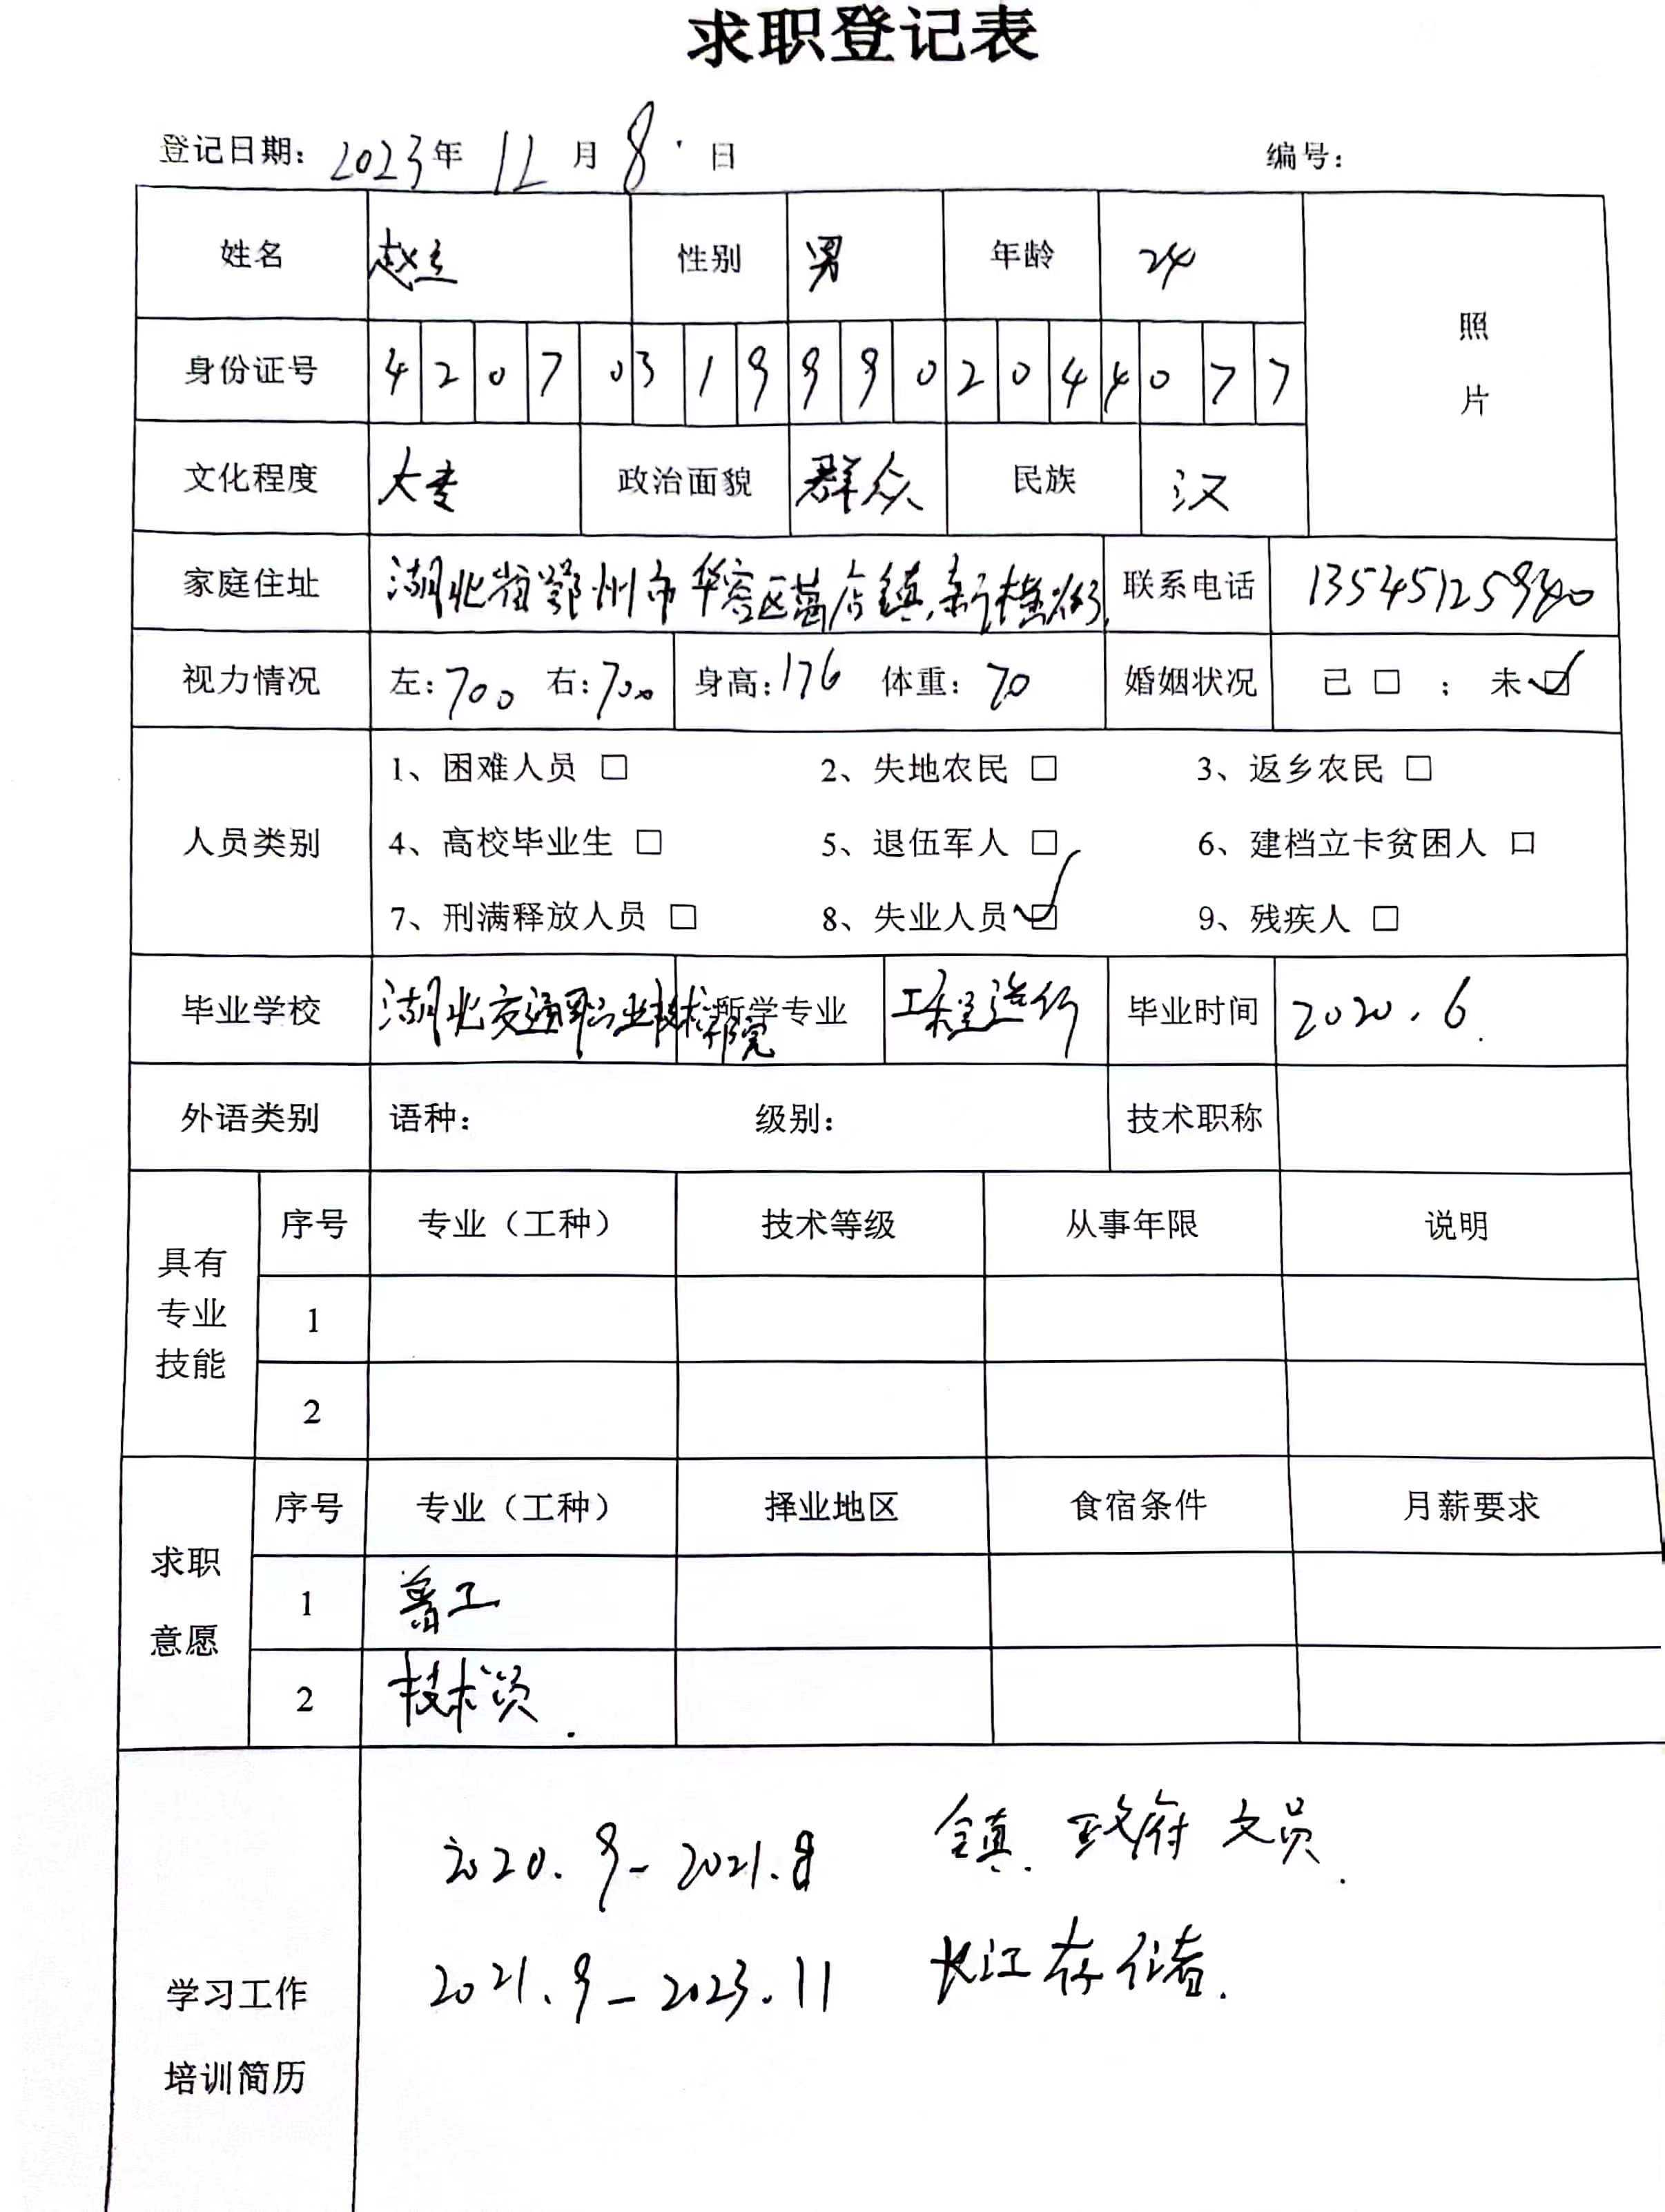 求职登记表
登记日期：2023年 12 月 8 日 编号：
姓名 赵 性别 男 年龄 24 照片
身份证号 420703199902044077
文化程度 大专 政治面貌 群众 民族 汉
家庭住址 湖北省鄂州市华容区葛店镇 联系电话
视力情况 左：700 右：700 身高：176 体重：70 婚姻状况 已 □ ； 未 ☑
人员类别 1、困难人员 □ 2、失地农民 □ 3、返乡农民 □
4、高校毕业生 □ 5、退伍军人 □ 6、建档立卡贫困人 □
7、刑满释放人员 □ 8、失业人员 ☑ 9、残疾人 □
毕业学校 湖北交通职业技术学院 所学专业 工程造价 毕业时间 2020.6.
外语类别 语种： 级别： 技术职称
具有专业技能 序号 专业（工种） 技术等级 从事年限 说明
1
2
求职意愿 序号 专业（工种） 择业地区 食宿条件 月薪要求
1 普工
2 技术员.
学习工作培训简历
2020.9-2021.8 镇.政府 文员.
2021.9-2023.11 长江存储.